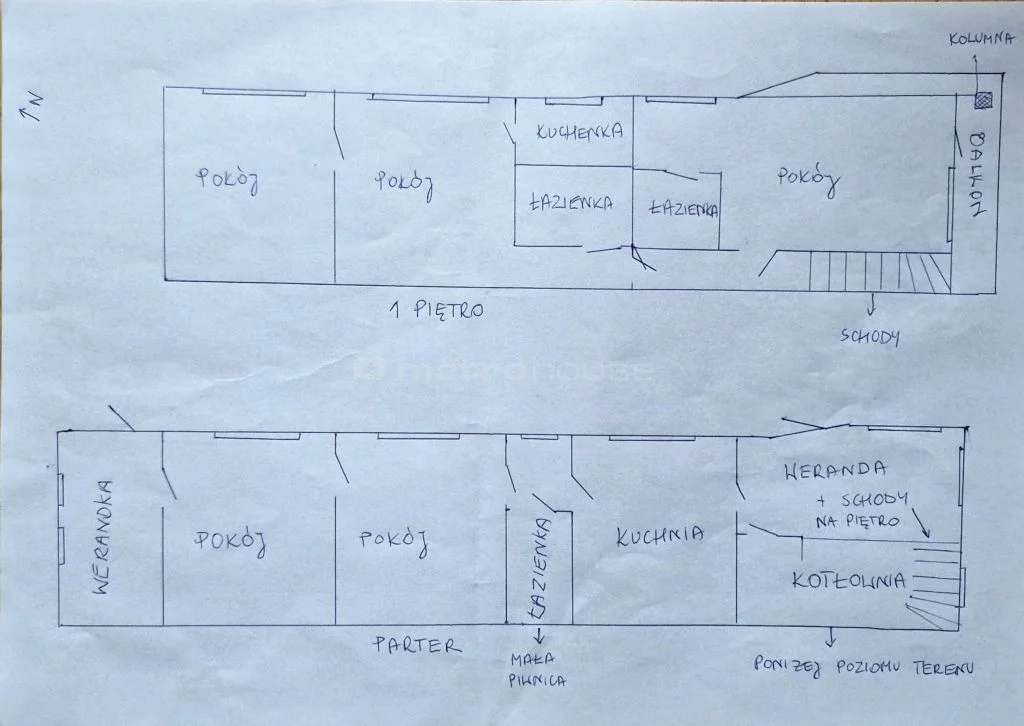 KOLUMNA
N
KUCHENKA
POKÓJ
POKÓJ
POKÓJ
BALKON
ŁAZIENKA
ŁAZIENKA
1 PIĘTRO
SCHODY
metrohouse
WERANDA
+ SCHODY
NA PIĘTRO
WERANDKA
POKÓJ
POKÓJ
ŁAZIENKA
KUCHNIA
KOTŁOWNIA
PARTER
MAŁA
PIWNICA
PONIŻEJ POZIOMU TERENU